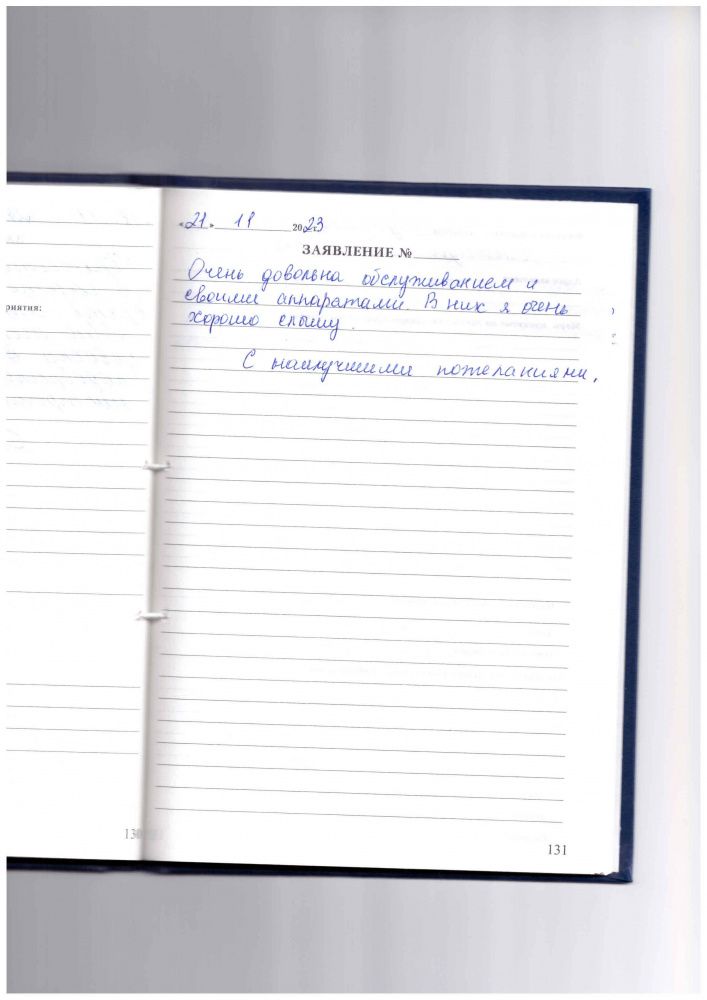 «21» 11 2023
ЗАЯВЛЕНИЕ №
Очень довольна обслуживанием и
своими аппаратами. В них я очень
хорошо слышу.
С наилучшими пожеланиями,
приятия:
130
131